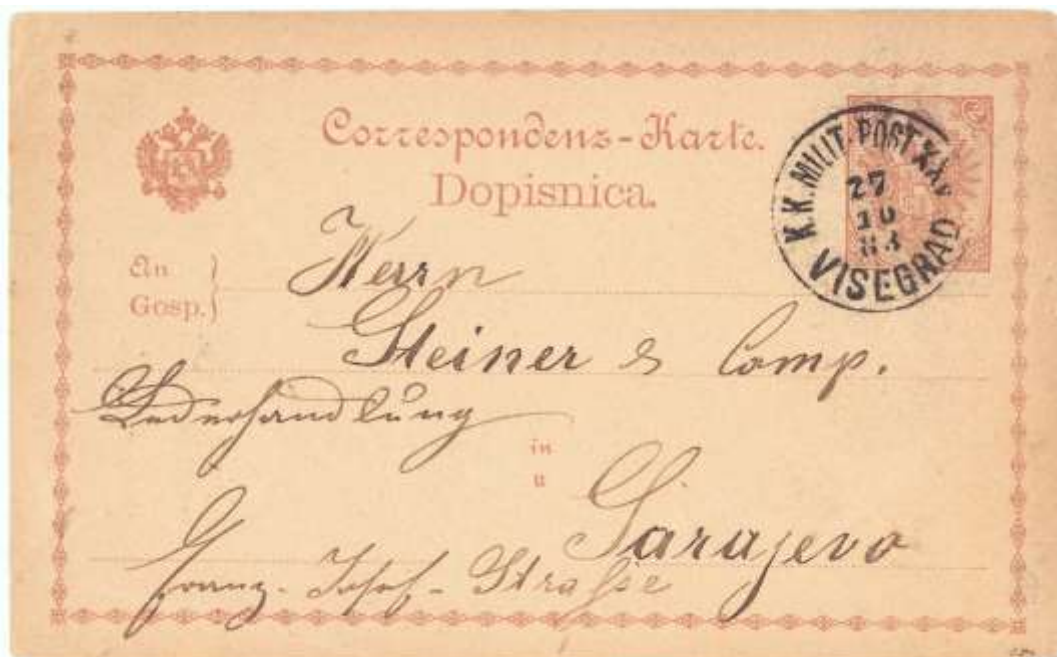 Correspondenz-Karte.
Dopisnica.
K.K. MILIT. POST XXV
27
10
83
VISEGRAD
An
Gosp.
Herrn
Steiner & Comp.
Lederhandlung
in
u
Sarajevo
Franz-Josef-Straße